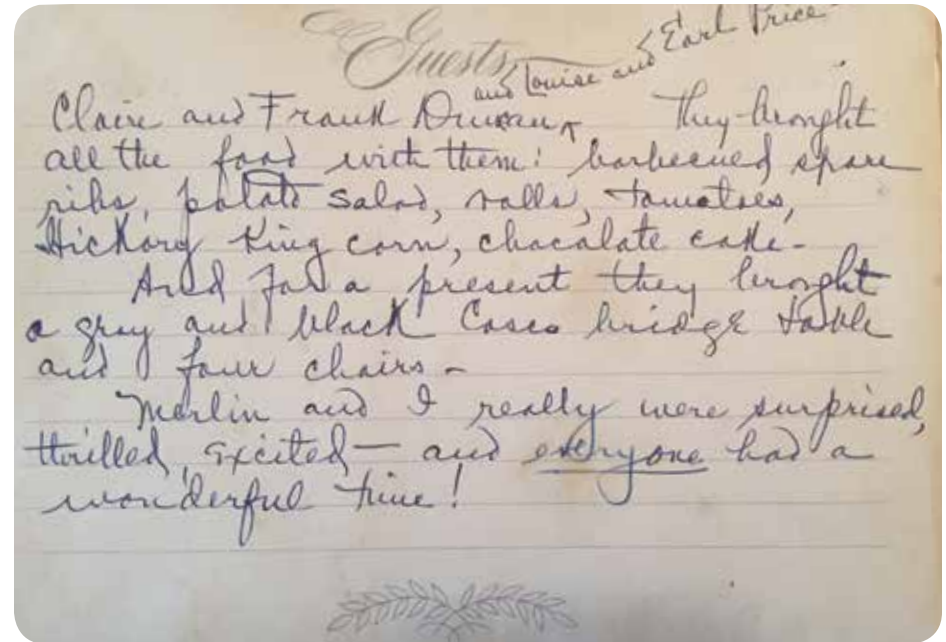 Guests
and Louise and Earl Price
Claire and Frank Duncan ^ They brought
all the food with them: barbecued spare
ribs, potato salad, rolls, tomatoes,
Hickory King corn, chocolate cake-
And for a present they brought
a grey and black Cosco bridge table
and four chairs-
Merlin and I really were surprised,
thrilled, excited— and everyone had a
wonderful time!